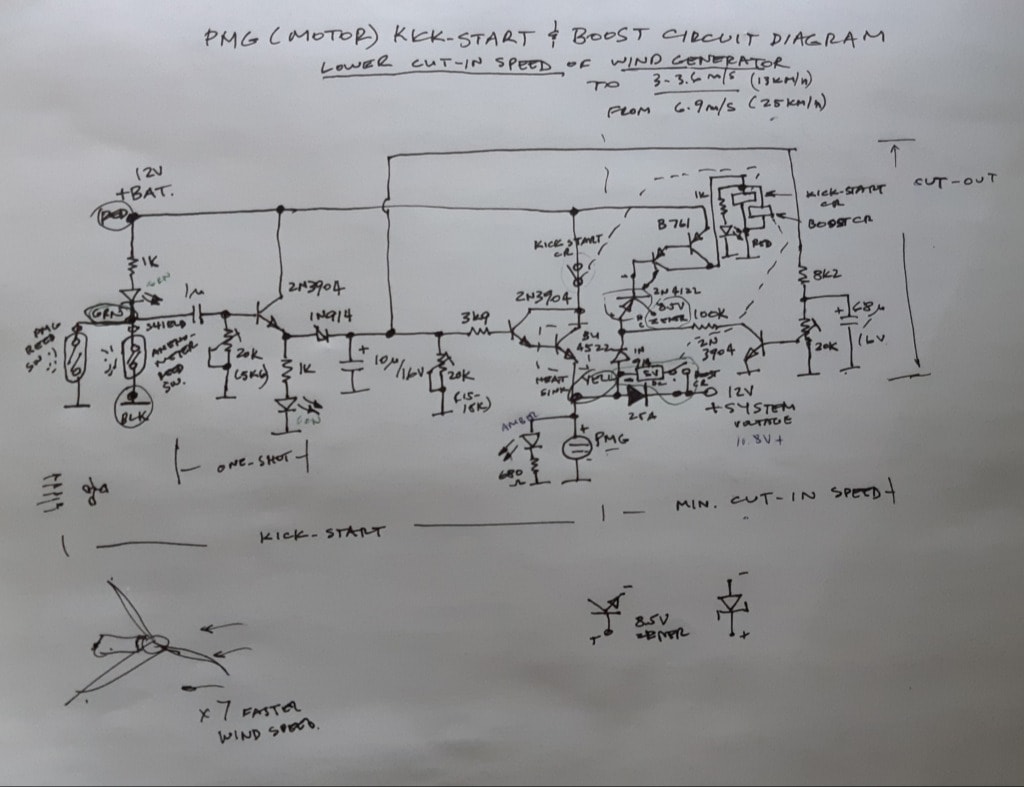 PMG (MOTOR) KICK-START & BOOST CIRCUIT DIAGRAM
LOWER CUT-IN SPEED OF WIND GENERATOR
TO 3-3.6 m/s (13KM/h)
FROM 6.9 m/s (25KM/h)
12V
+BAT.
RED
1K
GRN
GRN
SHIELD
1µ
PMG
REED
SW.
ANEMO-
METER
REED
SW.
BLK
20K
(5K6)
2N3904
1N914
1K
GRN
10µ/
16V
20K
(15-
18K)
3K9
2N3904
HEAT
SINK
KICK START
CR
B761
1K
RED
KICK-START
CR
BOOST CR
CUT-OUT
8.5V
ZENER
100K
2N
3904
8K2
68µ/
16V
20K
YELL
25A
12V
+SYSTEM
VOLTAGE
11.8V+
AMBER
680
Ω
PMG
ONE-SHOT
KICK-START
MIN. CUT-IN SPEED
8.5V
ZENER
x 7 FASTER
WIND SPEED.